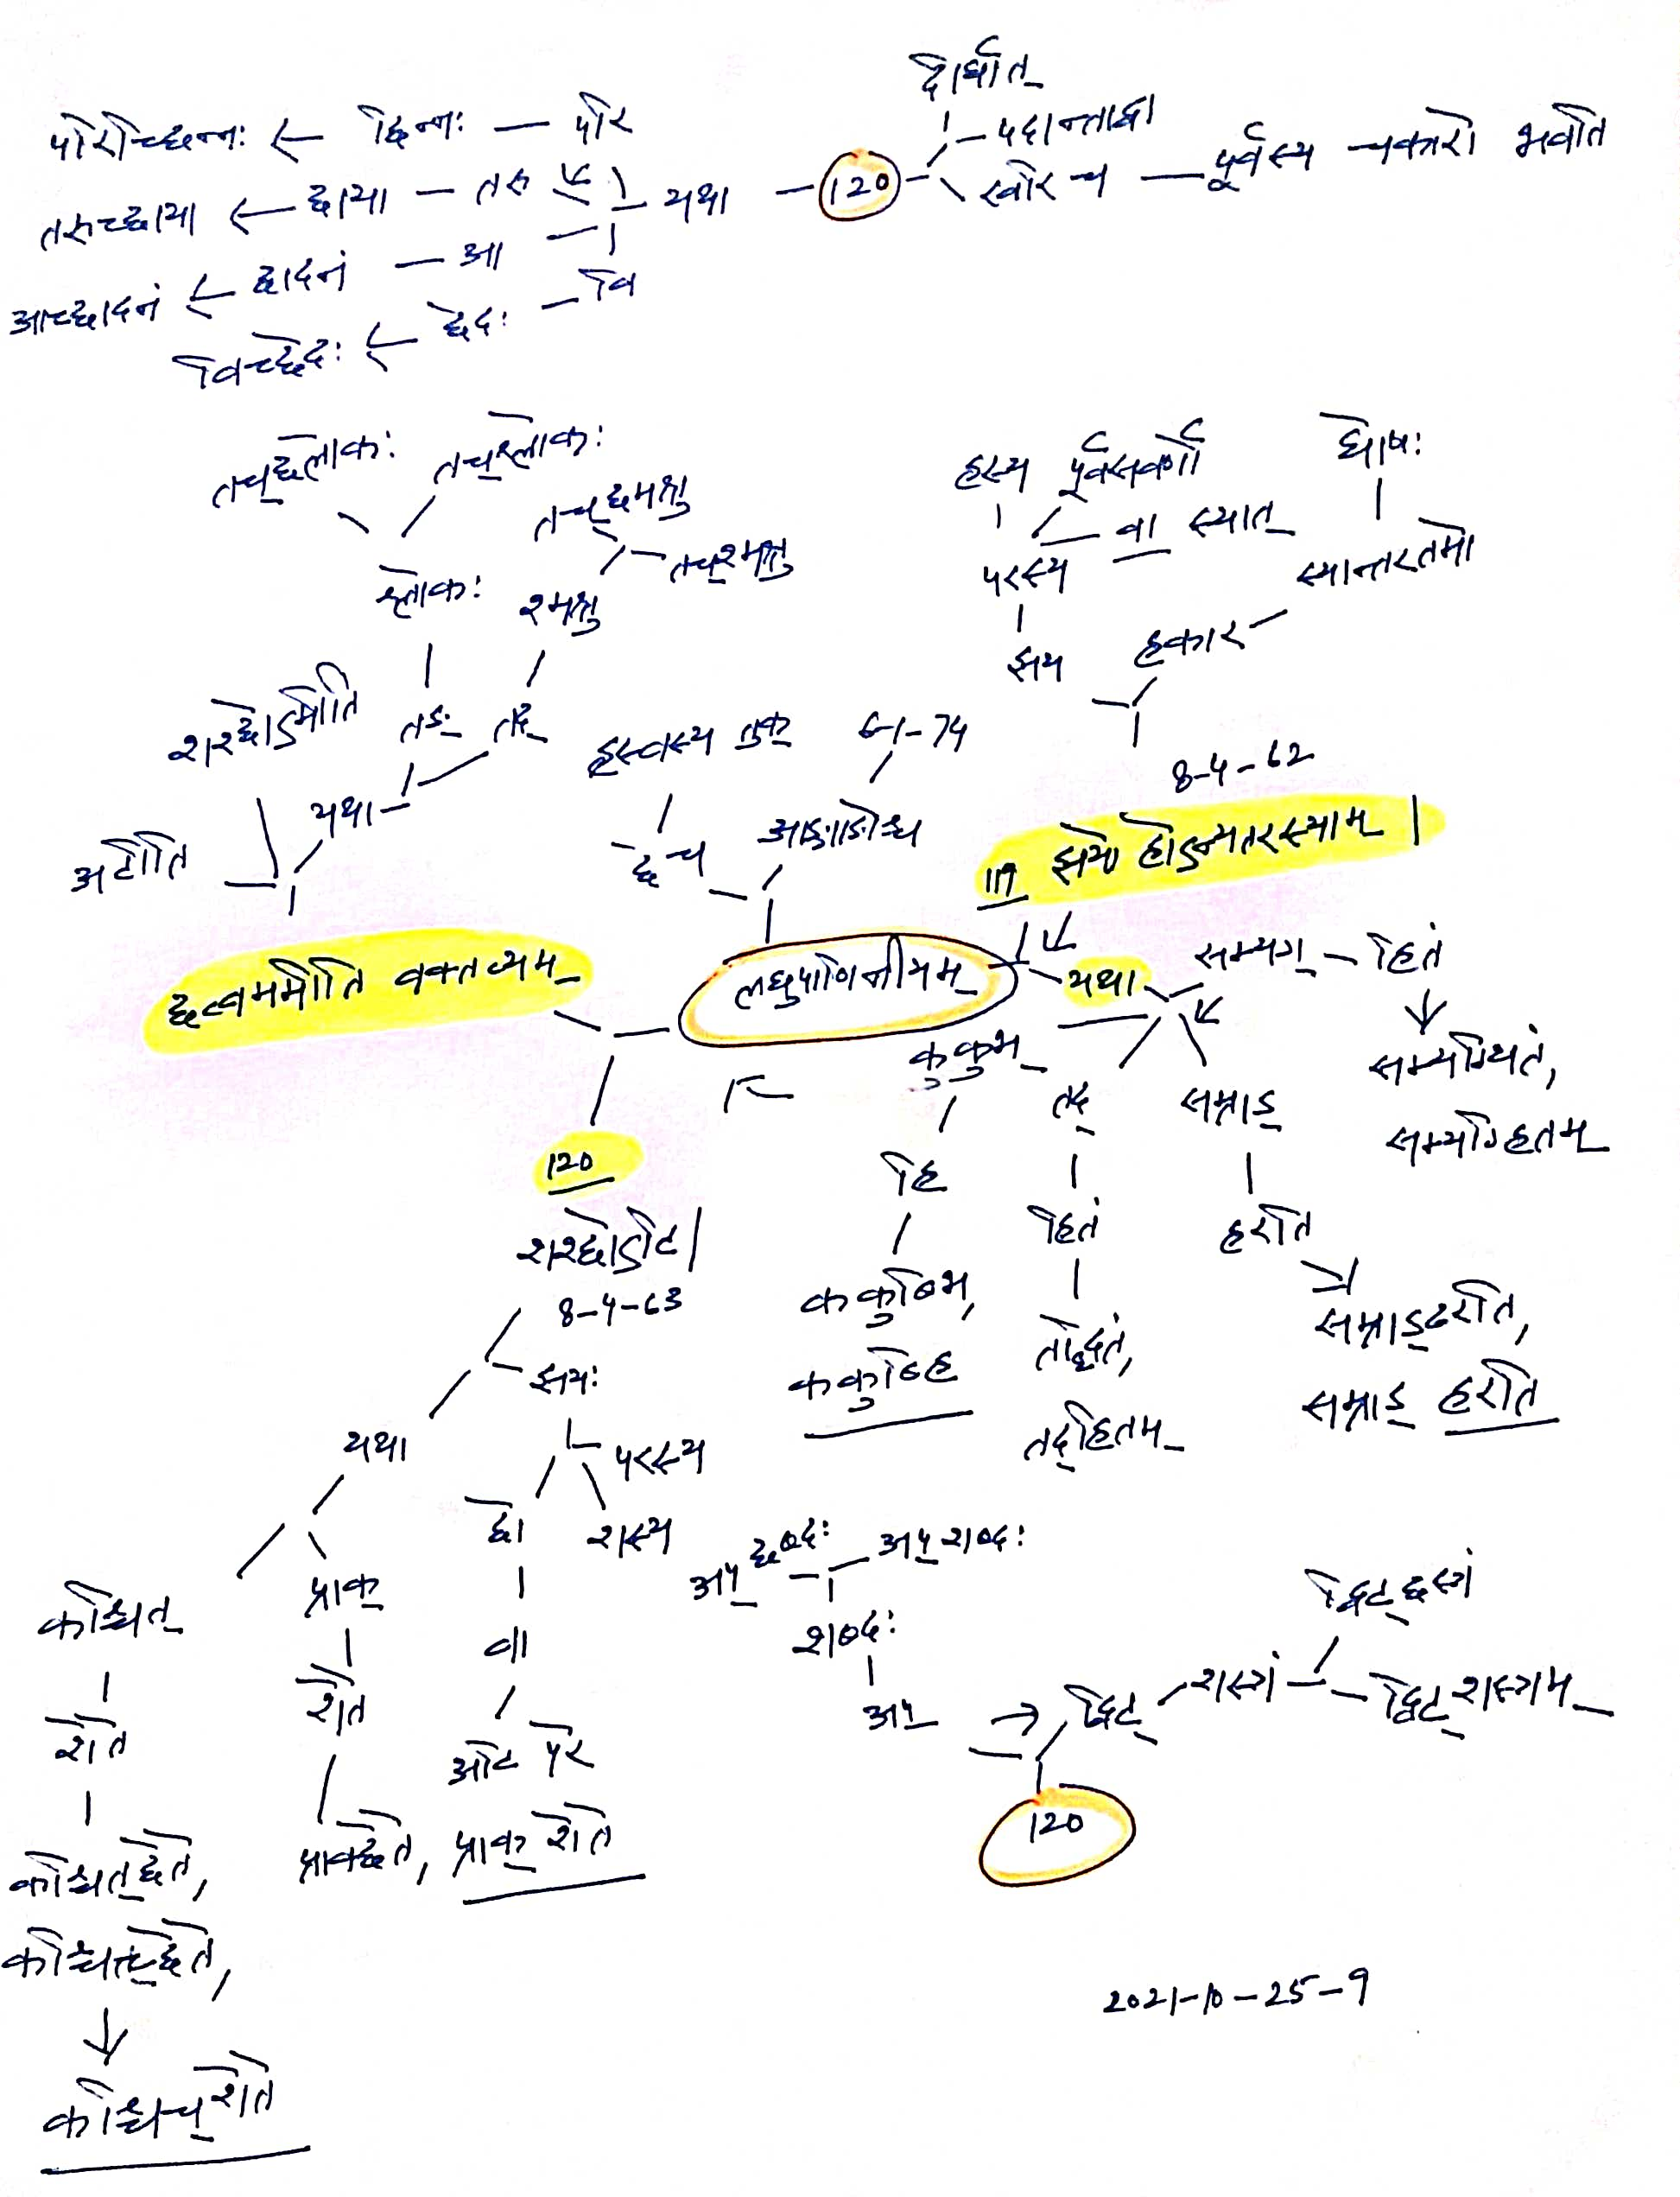 दीर्घात्
पदान्ताद्वा
परिच्छिन्नः ← छिन्नः — परि
तरुच्छाया ← छाया — तरु — यथा — 120 — खरि च — पूर्वस्य चकारो भवति
आच्छादनं ← छादनं — आ
विच्छेदः ← छेदः — वि
तच्छ्लोकः
तच्श्लोकः
तच्छ्मश्रु
तच्श्मश्रु
श्लोकः
श्मश्रु
हस्य पूर्वसवर्णो
घोषः
परस्य वा स्यात्
स्थान्तरतमो
झय
हकार
शश्छोऽमीति
तद्
यथा
अटीति
ह्रस्वस्य तुक्
6-1-74
छे च
आङ्माङोश्च
8-4-62
119 झयो होऽन्यतरस्याम् |
छत्वममीति वक्तव्यम्
लघुपाणिनीयम्
यथा
सम्यग् — हितं
सम्यग्घितं,
सम्यग्हितम्
ककुभ्
तद्
सम्राड्
हि
हितं
हरति
ककुब्भि,
ककुब्हि
तद्धितं,
तद्हितम्
सम्राड्ढरति,
सम्राड् हरति
120
शश्छोऽटि |
8-4-63
झयः
यथा
परस्य
छो
शस्य
वा
अटि परे
कश्चित्
प्राक्
शेते
शेते
प्राक्छेते, प्राक् शेते
कश्चित्छेते,
कश्चिच्छेते,
↓
कश्चिच्शेते
अप्छब्दः
अप्शब्दः
शब्दः
अप्
द्विट्छस्त्रं
द्विट् — शस्त्रं — द्विट्शस्त्रम्
120
2021-10-25-9